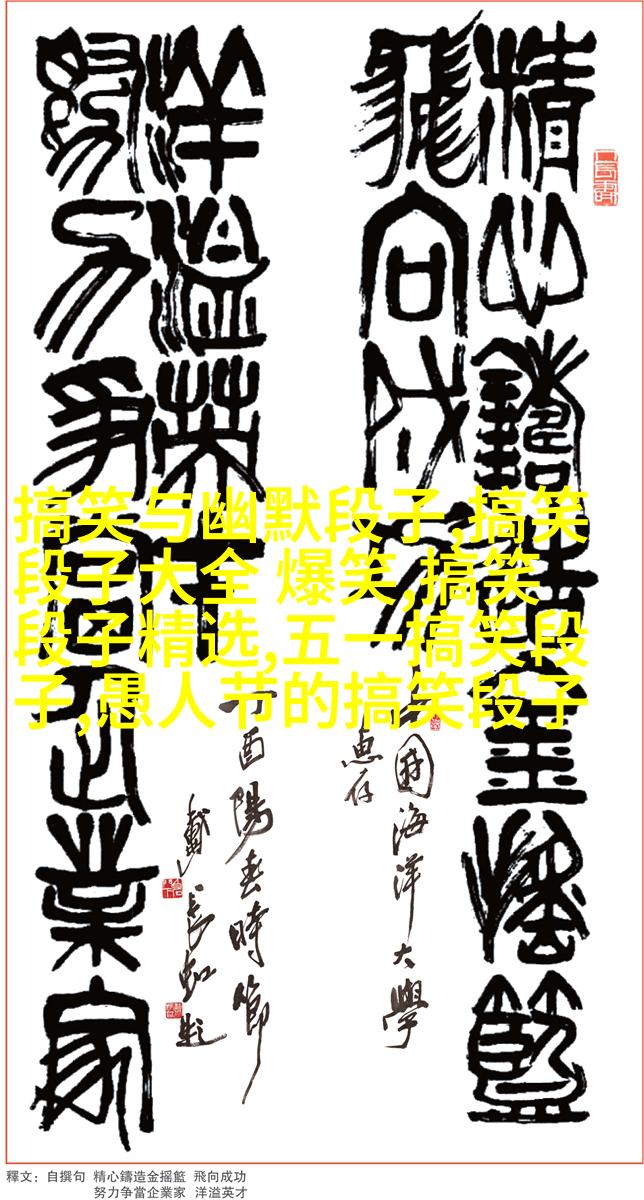 精心鑄造金摇籃
飛向成功
中國海洋大學
惠存
努力争當企業家
洋溢英才
丁酉陽春時節
戴長虹題
搞笑与幽默段子,搞笑
段子大全 爆笑,搞笑
段子精选,五一搞笑段
子,愚人节的搞笑段子
釋文：自撰句 精心鑄造金摇籃 飛向成功
努力争當企業家 洋溢英才